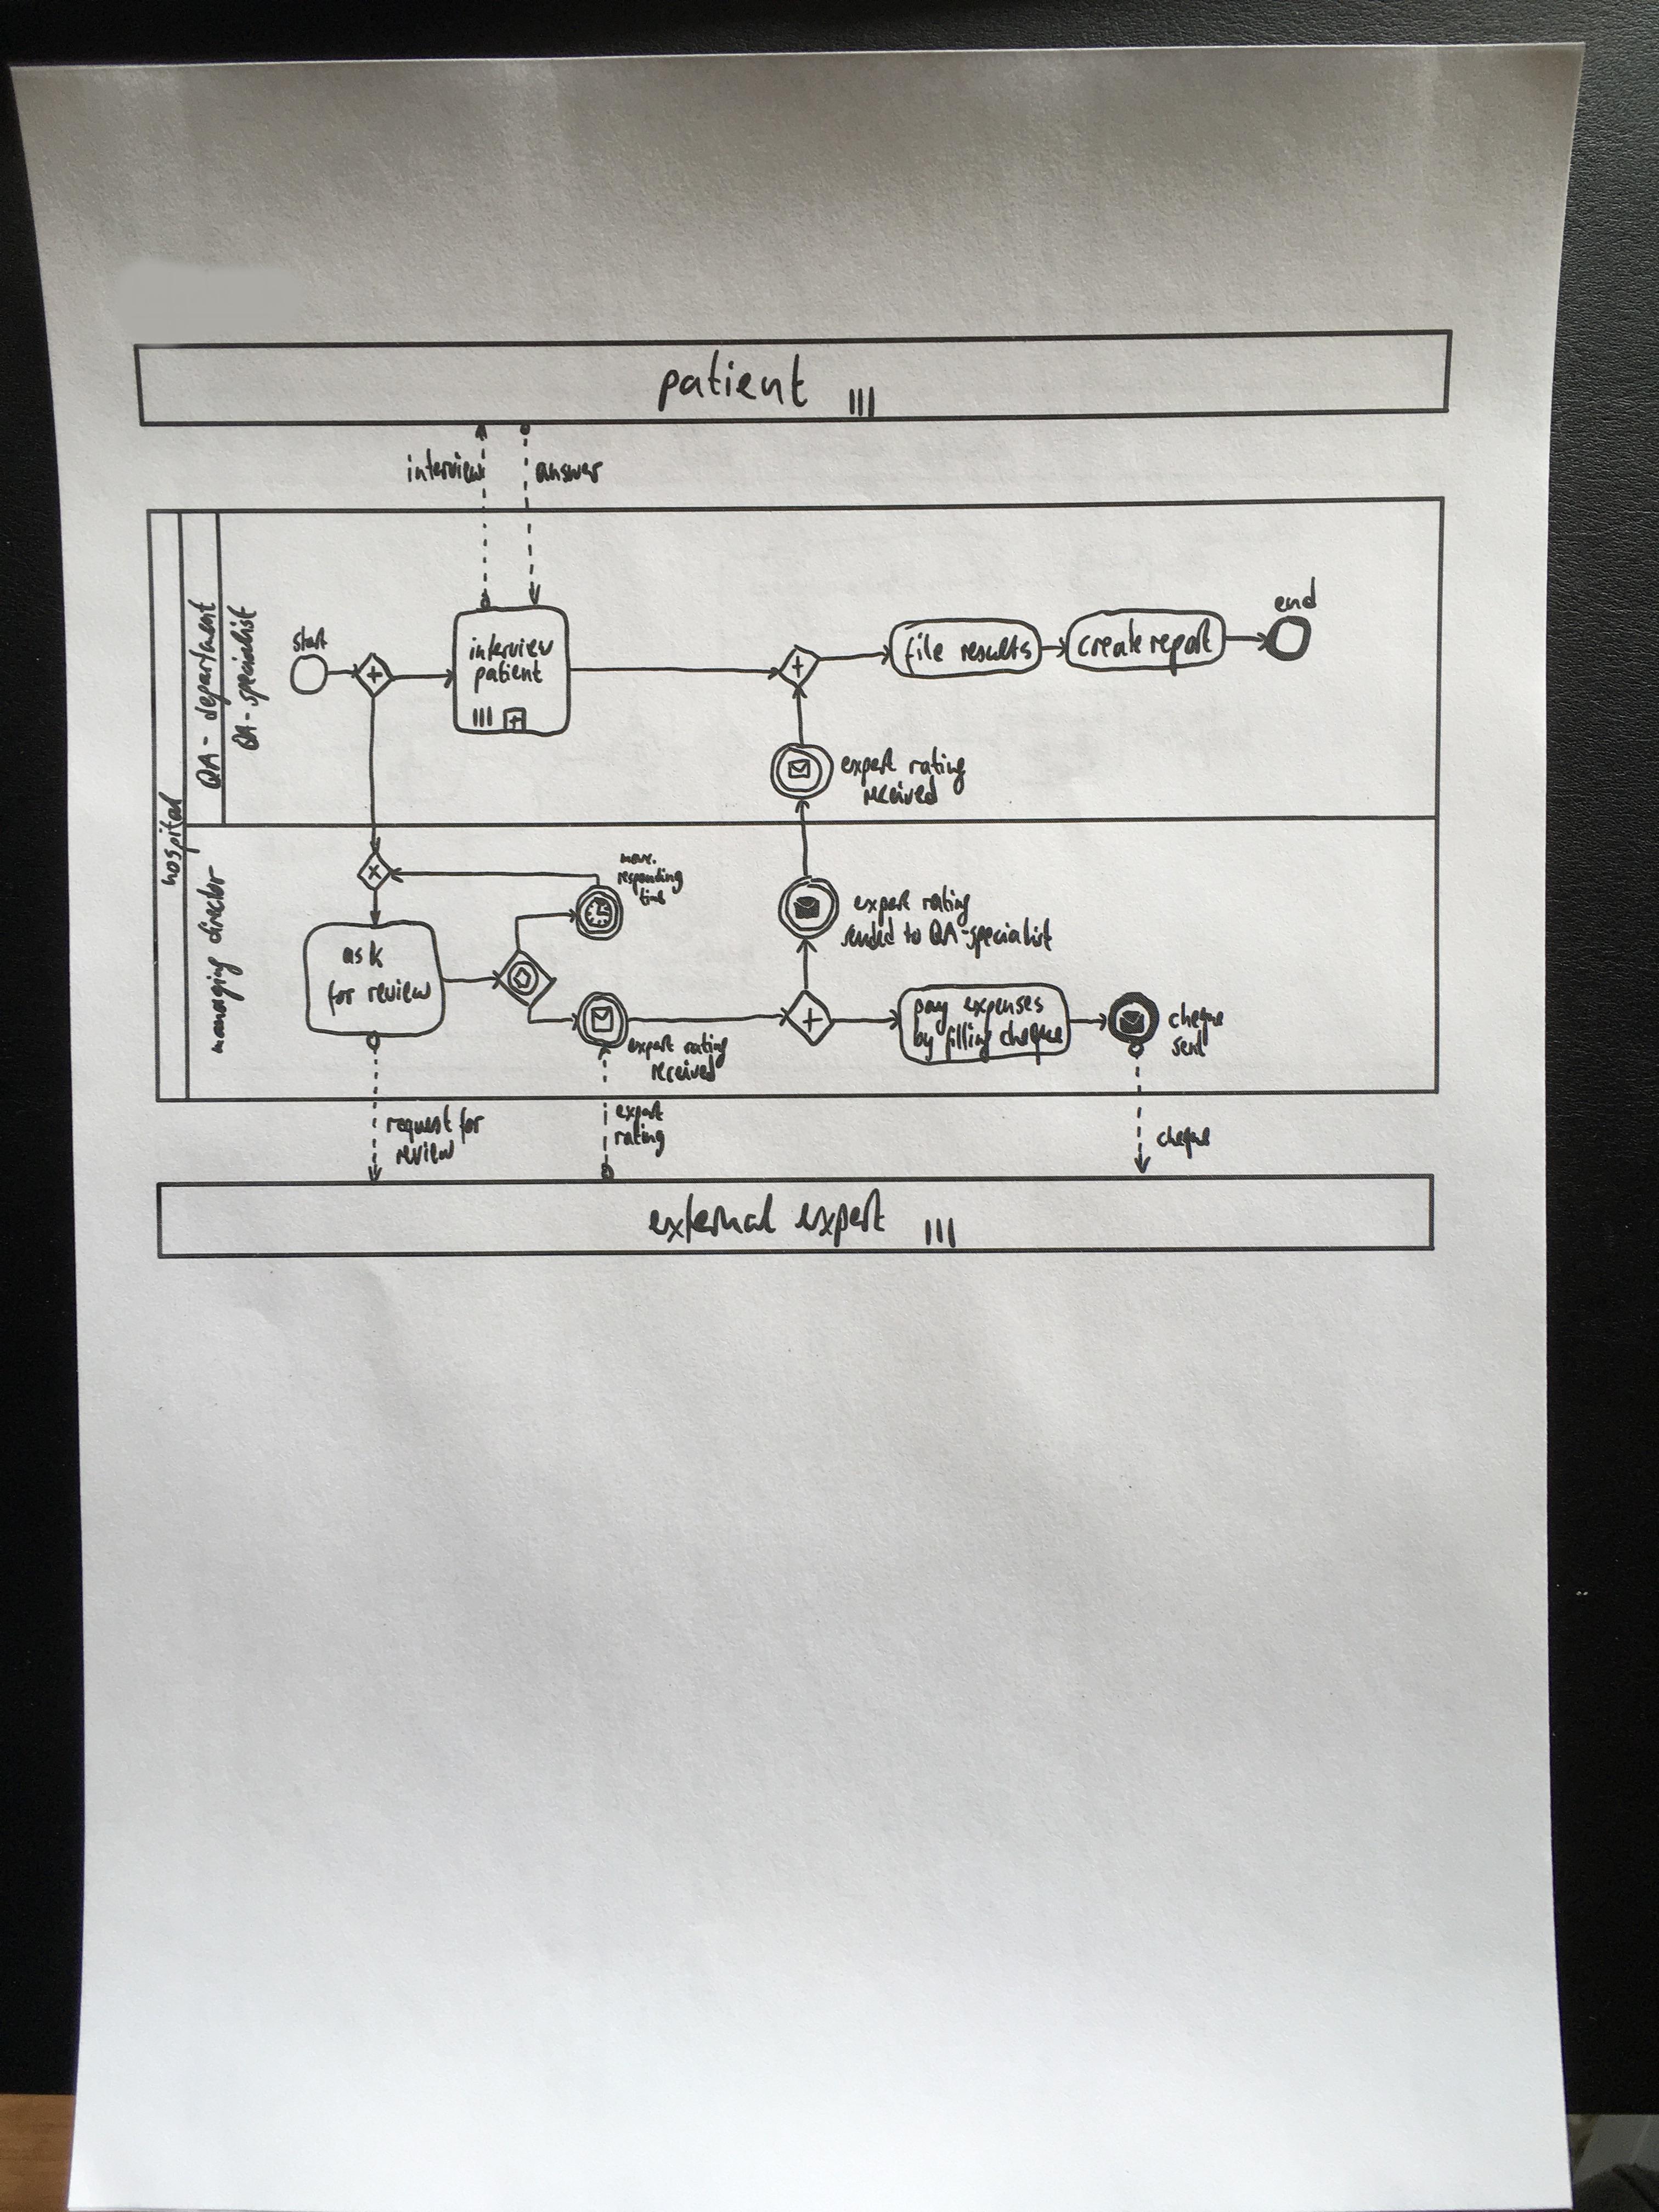 patient
interview
answer
hospital
QA - department
QA - specialist
start
interview
patient
file results
create report
end
expert rating
received
managing director
max.
responding
time
ask
for review
expert rating
sended to QA-specialist
expert rating
received
pay expenses
by filling cheque
cheque
sent
request for
review
expert
rating
cheque
external expert